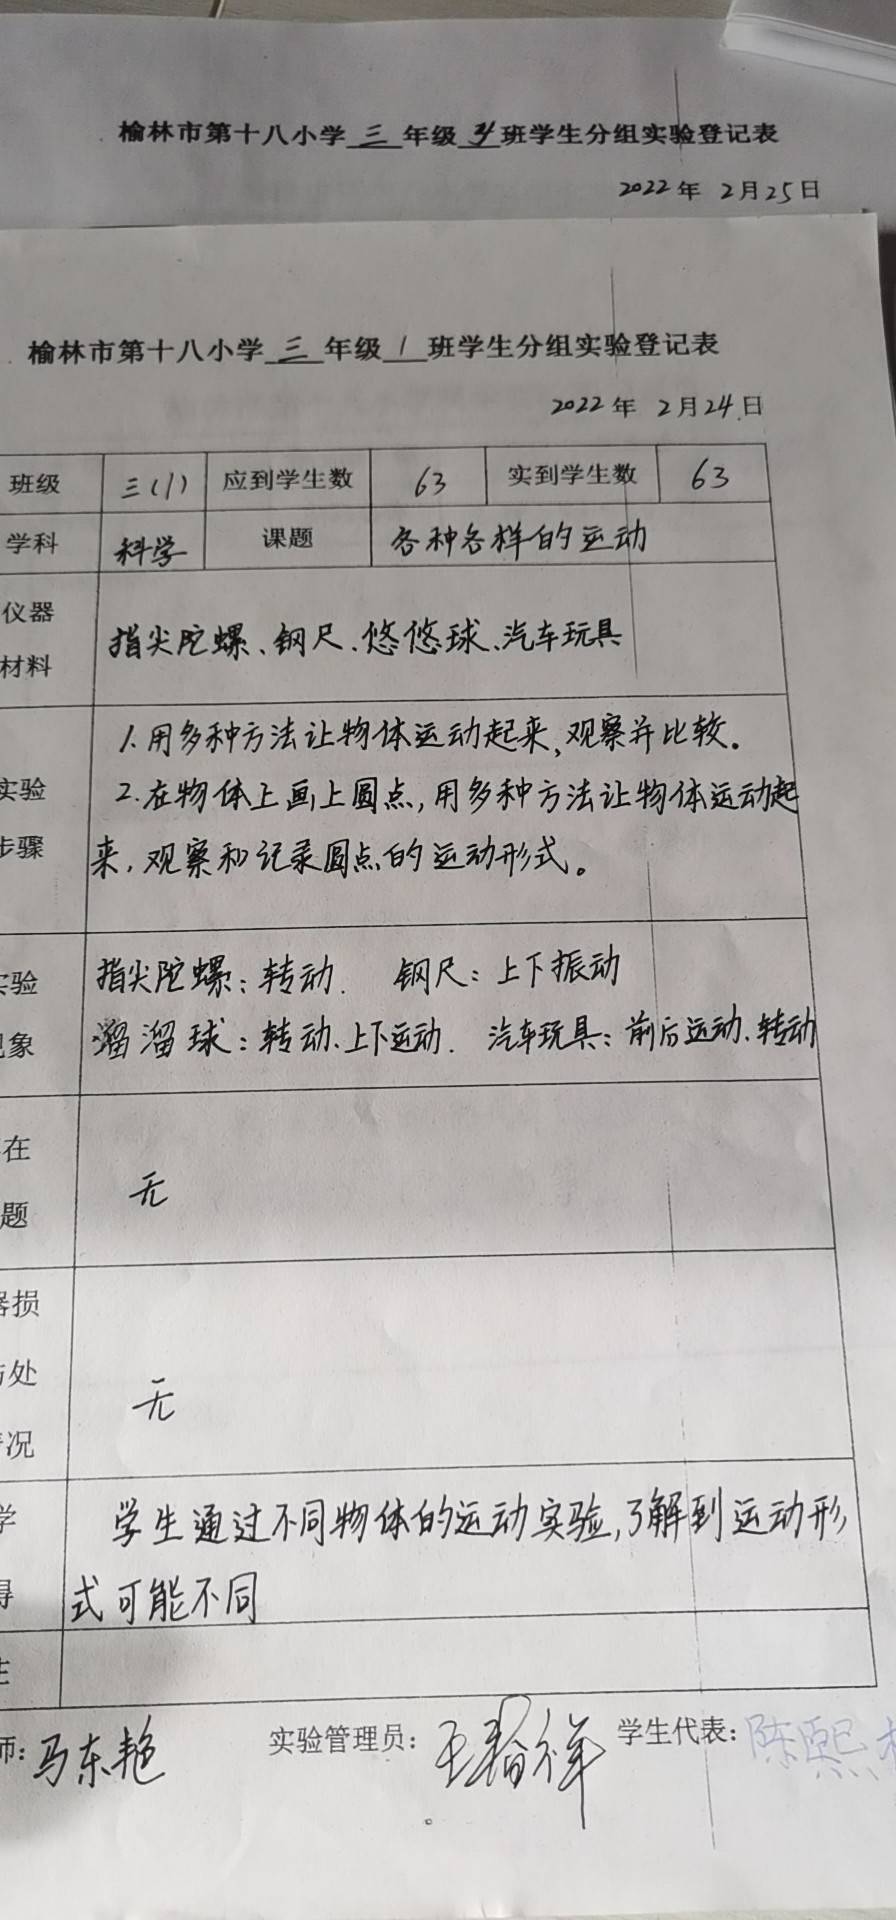 榆林市第十八小学 三 年级 班学生分组实验登记表
2022年 2月25日
榆林市第十八小学 三 年级 1 班学生分组实验登记表
2022年 2月24日
班级 三(1) 应到学生数 63 实到学生数 63
学科 科学 课题 各种各样的运动
仪器
材料
指尖陀螺、钢尺、悠悠球、汽车玩具
实验
步骤
1.用多种方法让物体运动起来,观察并比较。
2.在物体上画上圆点,用多种方法让物体运动起
来,观察和记录圆点的运动形式。
验
象
指尖陀螺:转动. 钢尺:上下振动
溜溜球:转动、上下运动. 汽车玩具:前后运动、转动
在
题
无
损
处
况
无
学
得
学生通过不同物体的运动实验,了解到运动形
式可能不同
师:马东艳 实验管理员: 学生代表:陈熙